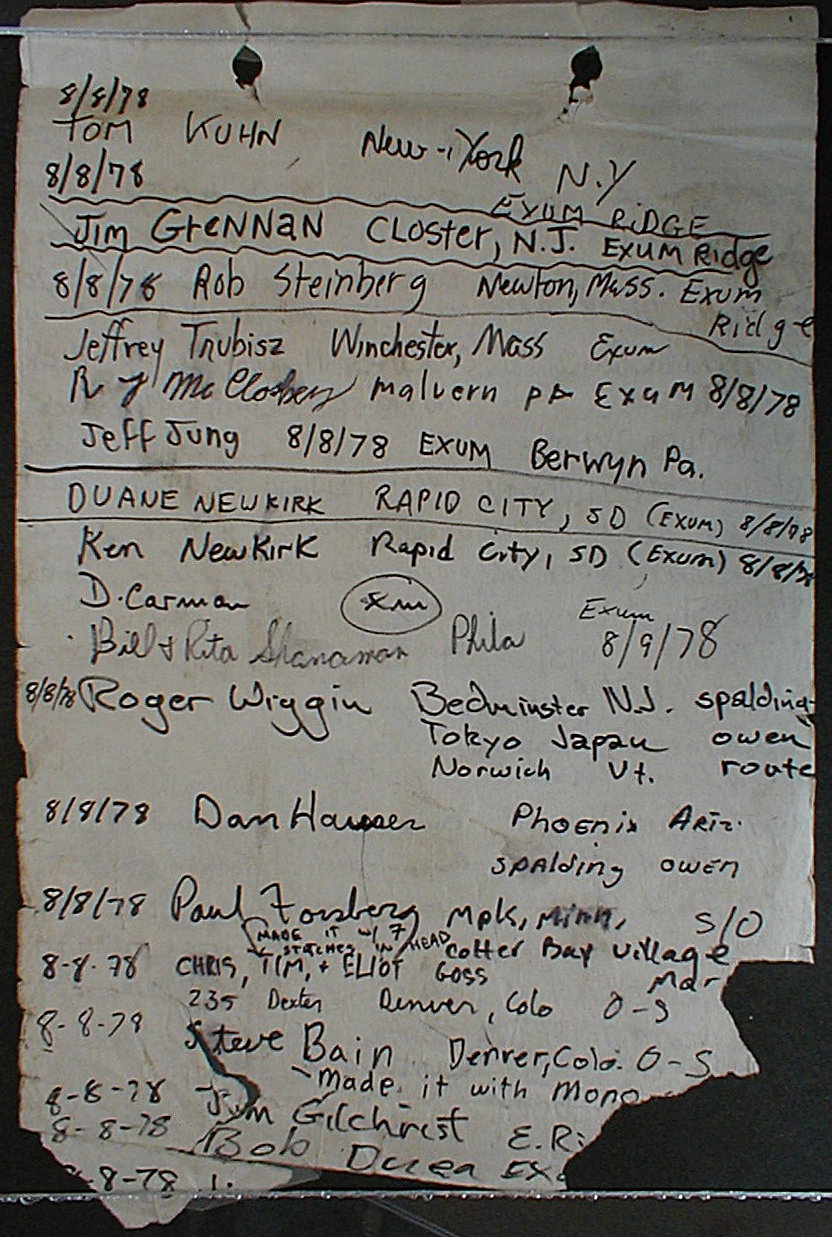 8/8/78
TOM KUHN New-York N.Y
8/8/78 EXUM RIDGE
Jim GreNNaN CLoster, N.J. EXUM Ridge
8/8/78 Rob Steinberg Newton, Mass. Exum
Ridge
Jeffrey Trubisz Winchester, Mass Exum
R J McCloskey malvern pa Exum 8/8/78
Jeff Jung 8/8/78 EXUM Berwyn Pa.
DUANE NEWKIRK RAPID CITY, SD (EXUM) 8/8/78
Ken NewKirk Rapid City, SD (Exum) 8/8/78
D. Carman Exum
Bill & Rita Shanaman Phila 8/9/78
8/8/78 Roger Wiggin Bedminster N.J. spalding
Tokyo Japan owen
Norwich Vt. route
8/8/78 Dan Hauser Phoenix Ariz.
spalding owen
8/8/78 Paul Forsberg Mpk, Minn, S/O
(MADE IT w/ 7 STITCHES IN HEAD) Colter Bay Village
8-8-78 CHRIS, TIM, + ELIOT GOSS Mar
235 Dexter Denver, Colo O-S
8-8-78 Steve Bain Denver, Colo. O-S
-Made it with Mono
8-8-78 Jim Gilchrist E.Ri
8-8-78 Bob Exu
8-78